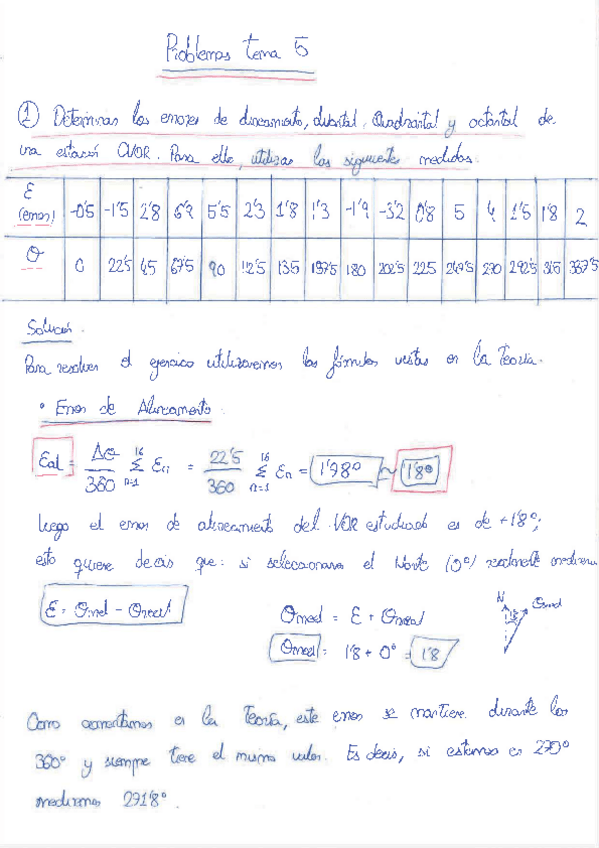 Problemas tema 5
① Determinar los errores de alineamiento, duantal, Quadrantal y octantal de
una estación CVOR. Para ello, utilizar las siguientes medidas.
ε (error) -0'5 -1'5 2'8 6'2 5'5 2'3 1'8 1'3 -1'9 -3'2 0'8 5 4 1'5 1'8 2
θ 0 22'5 45 67'5 90 112'5 135 157'5 180 202'5 225 247'5 270 292'5 315 337'5
Solución.
Para resolver el ejercicio utilizaremos las fórmulas vistas en la Teoría.
• Error de Alineamiento
Eal = Δθ/360 16 Σ n=1 En = 22'5/360 16 Σ n=1 En = 1'78º ≈ 1'8º
luego el error de alineamiento del VOR estudiado es de +1'8º;
esto quiere decir que: si seleccionara el Norte (0º) realmente
ε = θmed - θreal
θmed = ε + θreal
N θmed
θmed = 1'8 + 0º = 1'8
Como comentamos en la Teoría, este error se mantiene durante los
360º y siempre tiene el mismo valor. Es decir, si estamos en 270º
mediremos 271'8º.